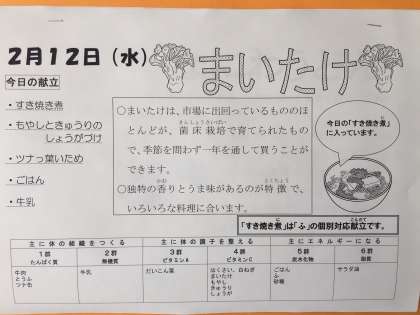 2月12日（水）
まいたけ
今日の献立
・すき焼き煮
・もやしときゅうりの
しょうがづけ
・ツナっ葉いため
・ごはん
・牛乳
○まいたけは、市場に出回っているもののほ
とんどが、菌床栽培で育てられたもの
きんしょうさいばい
で、季節を問わず一年を通して買うことが
できます。
○独特の香りとうま味があるのが特徴で、
かお
とくちょう
いろいろな料理に合います。
今日の「すき焼き煮」
に入っています。
「すき焼き煮」は「ふ」の個別対応献立です。
主に体の組織をつくる 主に体の調子を整える 主にエネルギーになる
1群 2群 3群 4群 5群 6群
たんぱく質 無機質 ビタミンA ビタミンC 炭水化物 脂質
牛肉 牛乳 だいこん葉 はくさい、白ねぎ ごはん サラダ油
とうふ まいたけ ふ
ツナ缶 もやし 砂糖
きゅうり
しょうが